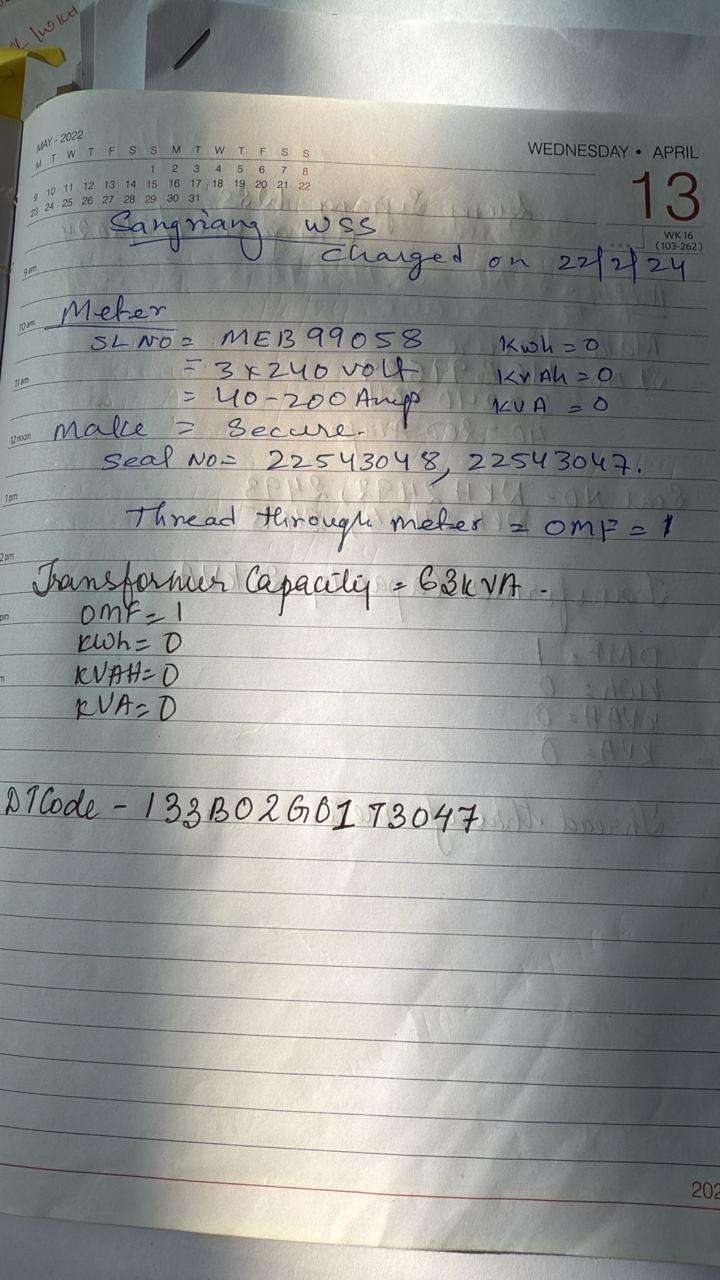 MAY - 2022
M T W T F S S M T W T F S S
1 2 3 4 5 6 7 8
9 10 11 12 13 14 15 16 17 18 19 20 21 22
23 24 25 26 27 28 29 30 31
WEDNESDAY • APRIL
13
WK 16
(103-262)
Sangriang WSS
Charged on 22/2/24
9am
Meter
10am
SL NO = MEB99058 Kwh = 0
= 3 x 240 volt KVAh = 0
11am
= 40-200 Amp KVA = 0
12noon
Make = Secure.
Seal No = 22543048, 22543047.
1pm
Thread through meter = OMF = 1
2pm
Transformer Capacity = 63kVA.
pm
OMF = 1
KWh = 0
KVAH = 0
KVA = 0
DTCode - 133B02G01T3047
202